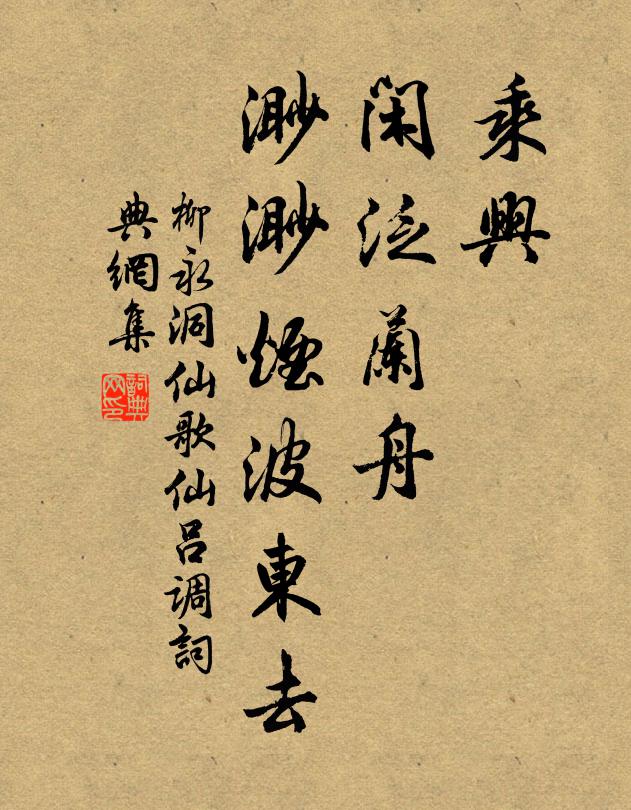 乘興
閑泛蘭舟
渺渺煙波東去
柳永洞仙歌仙呂調詞
典網集
詞典
网印